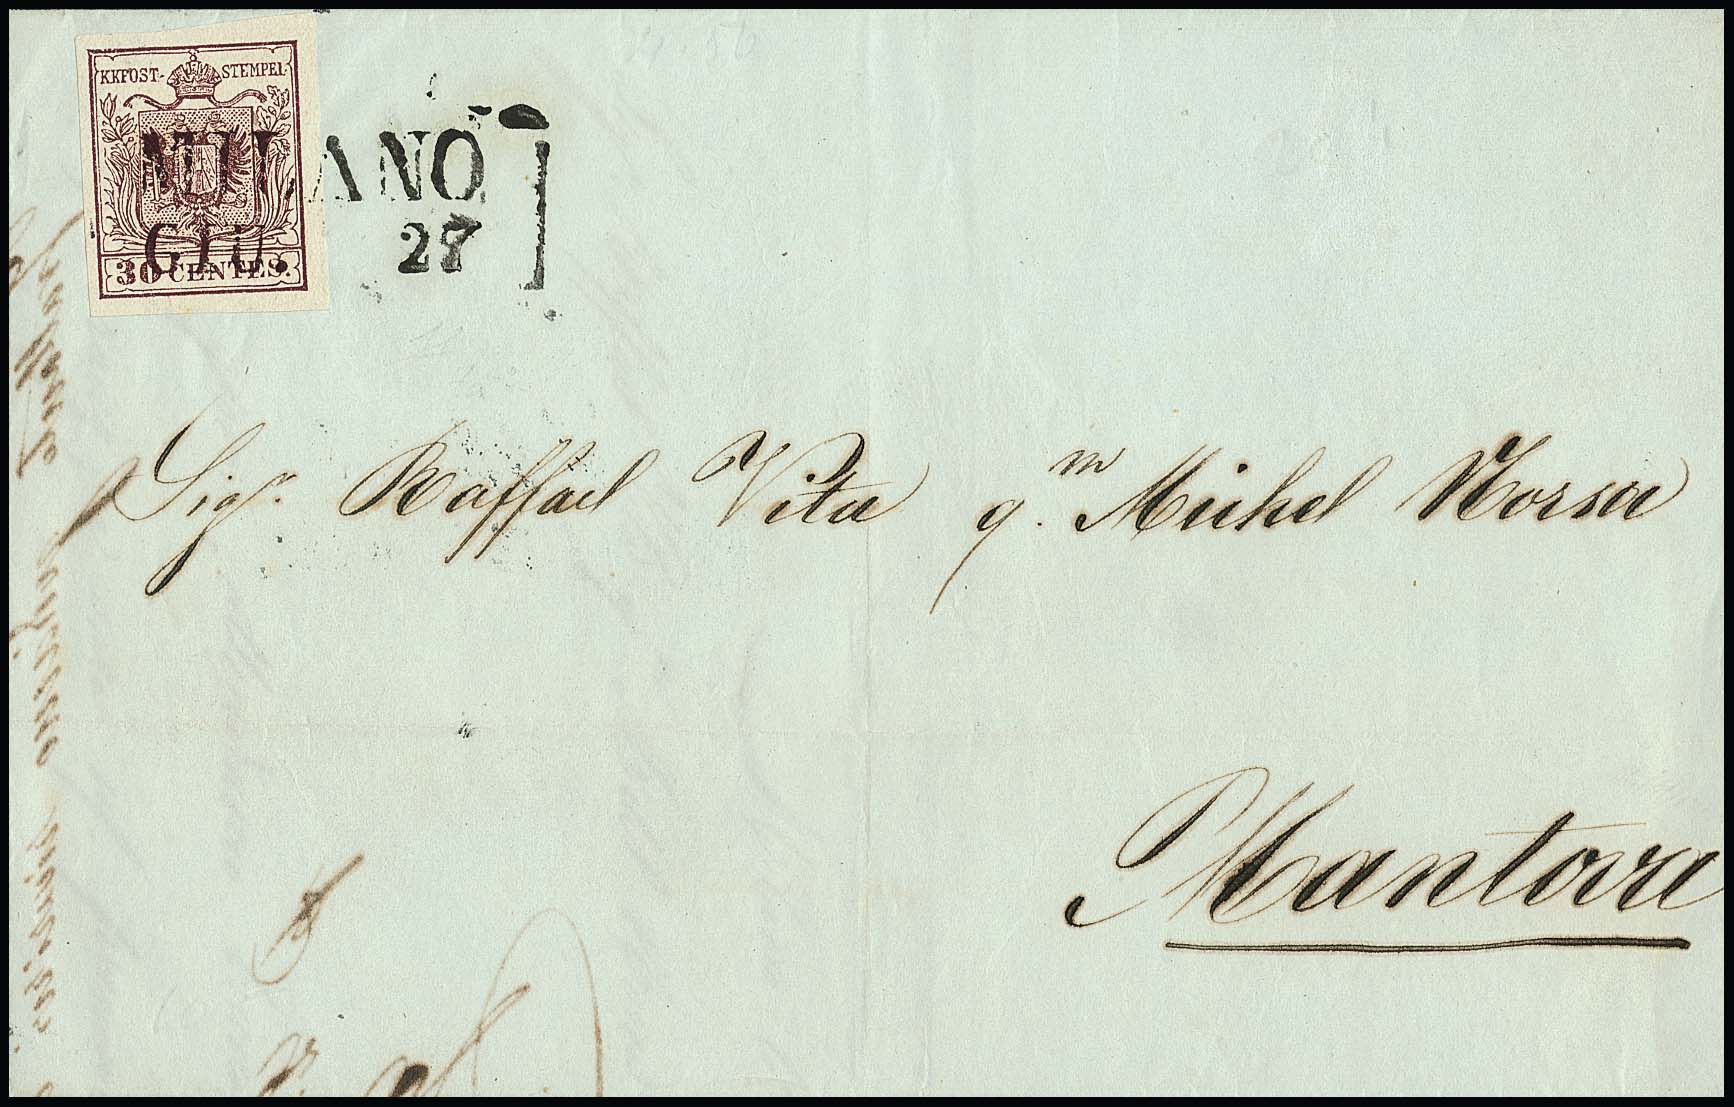 KKPOST-STEMPEL
30 CENTES.
MILANO
GIU. 27
Sigr. Raffael Vita qm. Michel Norsa
Mantova